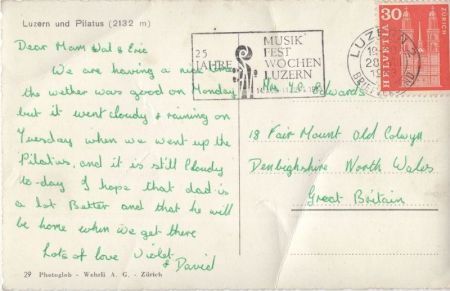 Luzern und Pilatus (2132 m)
Dear Mam Wal & Eric
We are having a nice time
the wether was good on Monday
but it went cloudy & raining on
Tuesday when we went up the
Pilatius, and it is still Cloudy
to-day I hope that dad is
a lot Better and that he will
be home when we get there
Lots of love Violet
& David
29 Photoglob - Wehrli A. G. - Zürich
25
JAHRE
MUSIK
FEST
WOCHEN
LUZERN
LUZERN
30
HELVETIA
ZÜRICH
Mrs Edwards
18 Fair Mount Old Colwyn
Denbighshire North Wales
Great Britain